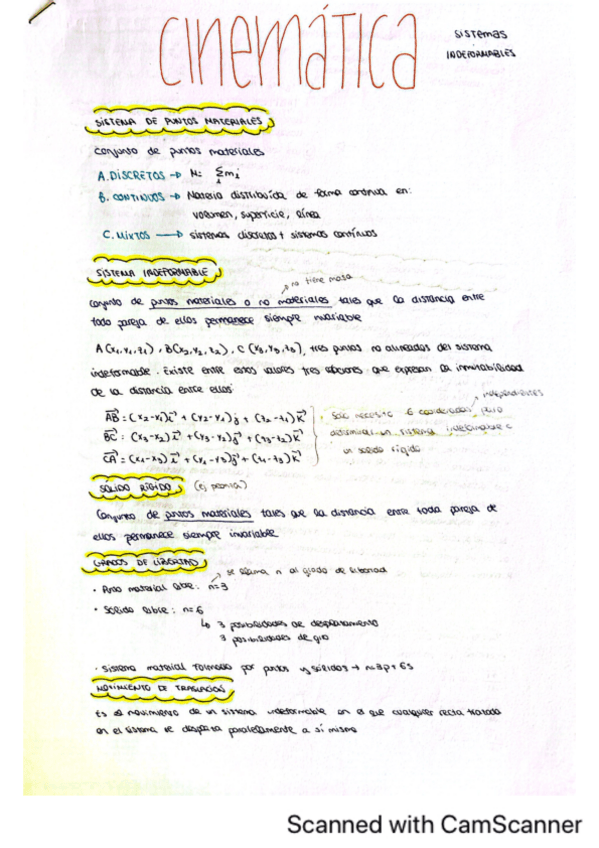 cinemática
SISTEMAS
INDEFORMABLES
SISTEMA DE PUNTOS MATERIALES
Conjunto de puntos materiales
A. DISCRETOS → M: Σmi
i
B. CONTINUOS → Materia distribuida de forma continua en:
volumen, superficie, línea
C. MIXTOS → sistemas discretos + sistemas continuos
SISTEMA INDEFORMABLE
no tiene masa
conjunto de puntos materiales o no materiales tales que la distancia entre
toda pareja de ellos permanece siempre invariable
A(x₁,y₁,z₁), B(x₂,y₂,z₂), C(x₃,y₃,z₃), tres puntos no alineados del sistema
indeformable. Existe entre estos valores tres que expresan la
de la distancia entre ellos:
independientes
AB = (x₂-x₁)i + (y₂-y₁)j + (z₂-z₁)k
BC = (x₃-x₂)i + (y₃-y₂)j + (z₃-z₂)k
CA = (x₁-x₃)i + (y₁-y₃)j + (z₁-z₃)k
Solo necesito 6 coordenadas para
determinar un sistema indeformable o
un sólido rígido
SÓLIDO RÍGIDO (ej peonza)
Conjunto de puntos materiales tales que la distancia entre toda pareja de
ellos permanece siempre invariable
GRADOS DE LIBERTAD
se llama n al grado de libertad
· Punto material libre: n=3
· Sólido libre: n=6
↳ 3 posibilidades de desplazamiento
3 posibilidades de giro
· Sistema material formado por puntos y sólidos → n=3p+6s
MOVIMIENTO DE TRASLACIÓN
Es el movimiento de un sistema indeformable en el que cualquier recta trazada
en el sistema se desplaza paralelamente a sí misma
Scanned with CamScanner